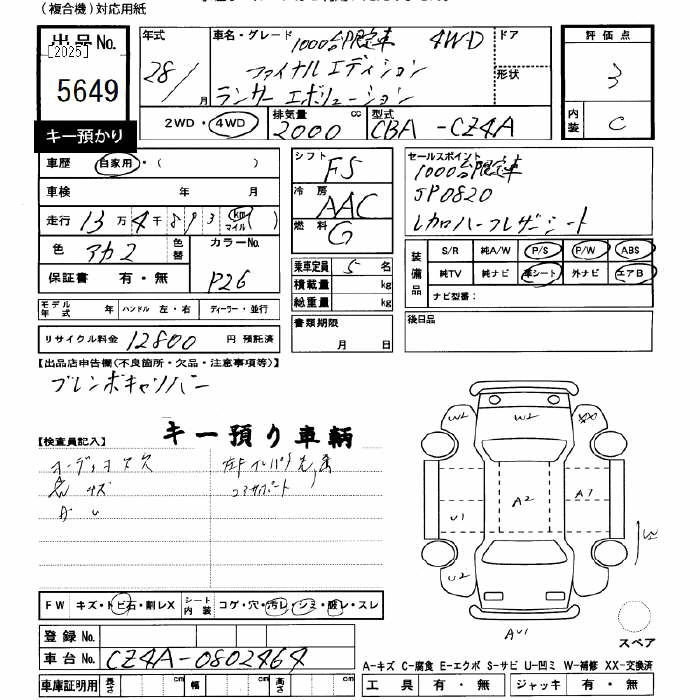 (複合機)対応用紙
出品No.
[2025]
5649
キー預かり
年式
28/
月
車名・グレード
1000台限定車 4WD
ファイナルエディション
ランサーエボリューション
ドア
形状
評価点
3
内装
C
2WD・4WD
排気量 cc
2000
型式
CBA-CZ4A
車歴 自家用・( )
車検 年 月
走行 13万4千893 km マイル ( )
色 アカ2
色替
カラーNo.
P26
保証書 有・無
モデル年式 年 ハンドル 左・右 ディーラー・並行
リサイクル料金 12800 円 預託済
シフト
F5
冷房
AAC
燃料
G
乗車定員 5 名
積載量 kg
総重量 kg
書類期限
月 日
セールスポイント
1000台限定車
SP0820
レカロハーフレザーシート
装備品
S/R 純A/W P/S P/W ABS
純TV 純ナビ 革シート 外ナビ エアB
ナビ型番:
後日品
【出品店申告欄(不良箇所・欠品・注意事項等)】
ブレンボキャリパー
キー預り車輌
【検査員記入】
コアサポート
W2 W2 XX
A2 A1
U1 W
U2
AU1
スペア
FW キズ・トビ石・割レX シート内装 コゲ・穴・汚レ・シミ・破レ・スレ
登録No.
車台No. CZ4A-0802464
車庫証明用 長さ cm 幅 cm 高さ cm
A-キズ C-腐食 E-エクボ S-サビ U-凹ミ W-補修 XX-交換済
工具 有・無 ジャッキ 有・無